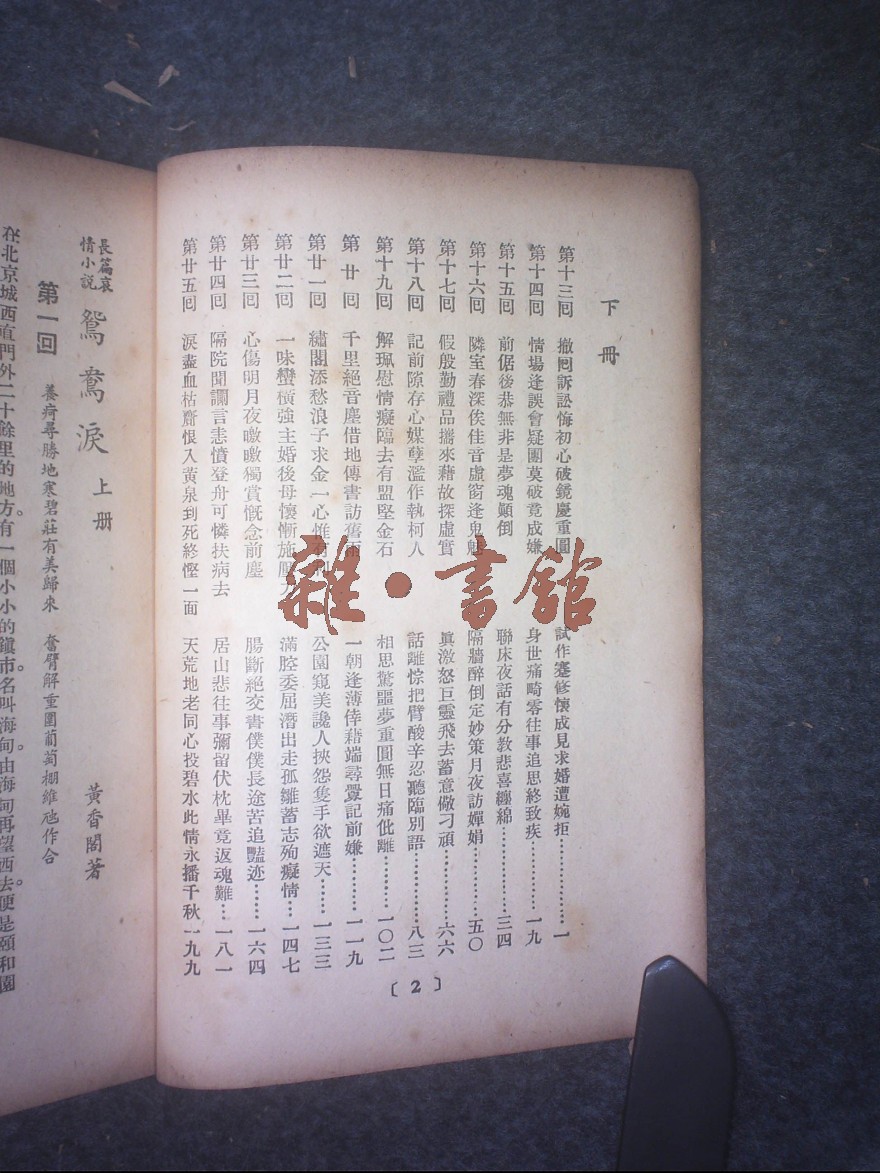 下冊
第十三囘 撤囘訴訟悔初心破鏡慶重圓 試作蹇修懷成見求婚遭婉拒………………一
第十四囘 情場逢誤會疑團莫破竟成嫌 身世痛畸零往事追思終致疾…………一九
第十五囘 前倨後恭無非是夢魂顚倒 聯床夜話有分教悲喜纏綿…………三四
第十六囘 隣室春深俟佳音虛窗逢鬼魅 隔牆醉倒定妙策月夜訪嬋娟…………五〇
第十七囘 假殷勤禮品攜來藉故探虛實 眞激怒巨靈飛去蓄意儆刁頑…………六六
第十八囘 記前隙存心媒孽濫作執柯人 話離悰把臂酸辛忍聽臨別語…………八三
第十九囘 解珮慰情癡臨去有盟堅金石 相思驚噩夢重圓無日痛仳離………一〇二
第廿囘 千里絕音塵借地傳書訪舊雨 一朝逢薄倖藉端尋釁記前嫌………一一九
第廿一囘 繡閣添愁浪子求金一心惟 公園窺美讒人挾怨隻手欲遮天……一三三
第廿二囘 一味蠻橫強主婚後母懷慚施壓力 滿腔委屈潛出走孤雛蓄志殉癡情…一四七
第廿三囘 心傷明月夜暾暾獨賞慨念前塵 腸斷絕交書僕僕長途苦追豔迹……一六四
第廿四囘 隔院聞讕言恚憤登舟可憐扶病去 居山悲往事彌留伏枕畢竟返魂難…一八一
第廿五囘 淚盡血枯齎恨入黃泉到死終慳一面 天荒地老同心投碧水此情永播千秋一九九
〔2〕
雜·書館
長篇哀情小說 鴛鴦淚 上册
黃香閣著
第一回 養疴尋勝地寒碧莊有美歸來 奮臂解重圍葡萄棚維虺作合
在北京城西直門外二十餘里的地方。有一個小小的鎮市。名叫海甸。由海甸再望西去。便是頤和園